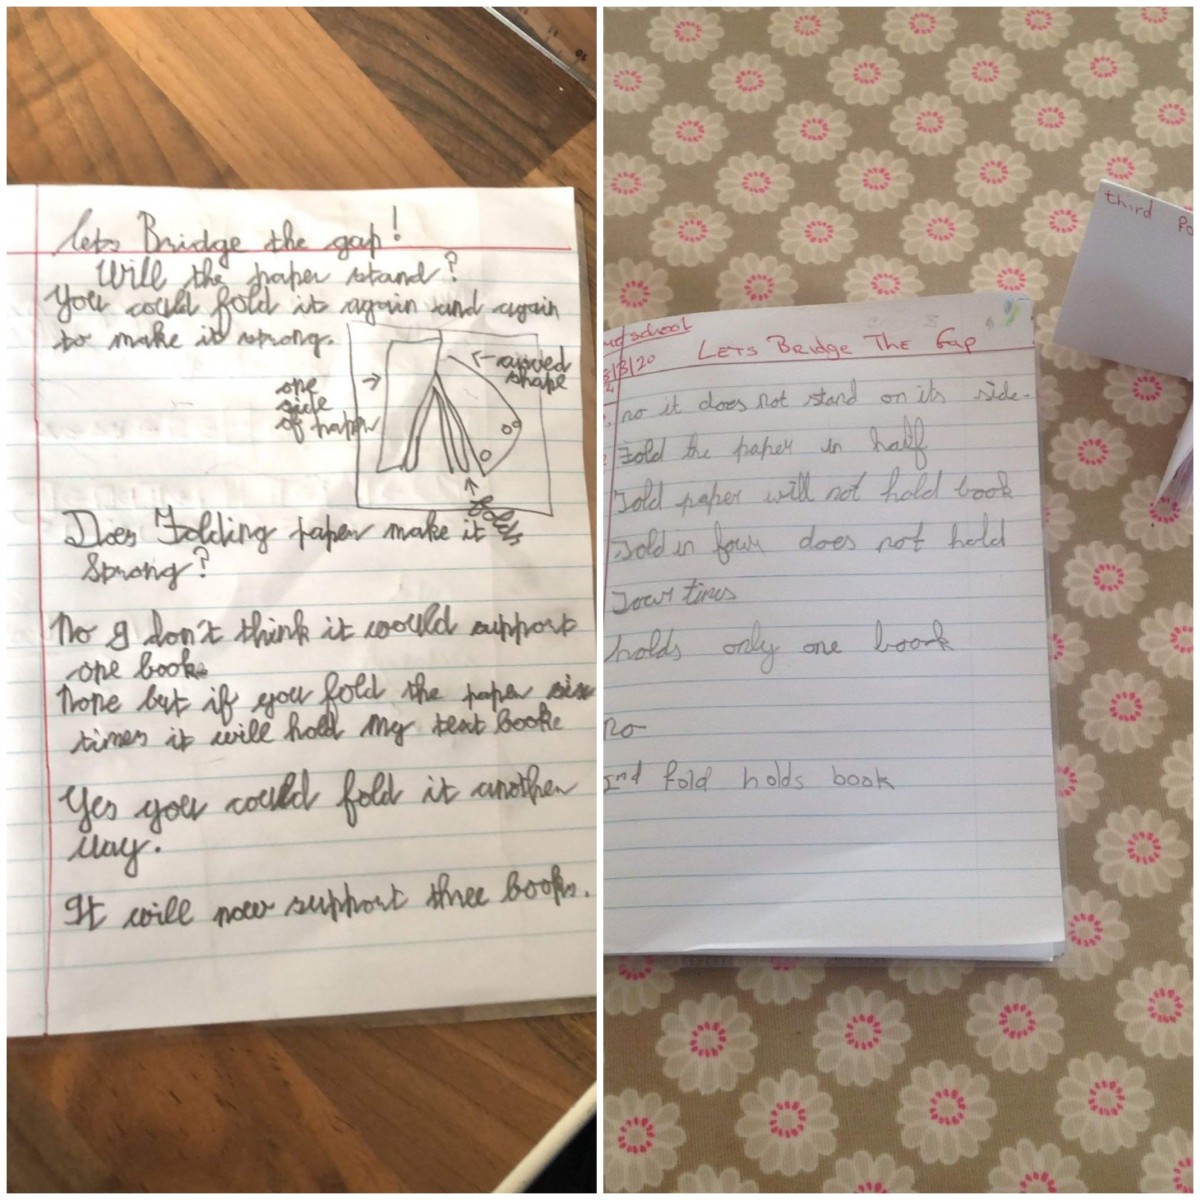 Lets Bridge the gap!
Will the paper stand?
You could fold it again and again
to make it strong.
curved
shape
one
side
of paper
folds
Does Folding paper make it
Strong?
No I don't think it would support
one book.
None but if you fold the paper six
times it will hold my text booke
Yes you could fold it another
way.
It will now support three books.
third Po
school
/3/20 LETS Bridge The Gap
no it does not stand on its side.
Fold the paper in half
Fold paper will not hold book
Fold in four does not hold
Four times
holds only one book
no
2nd fold holds book